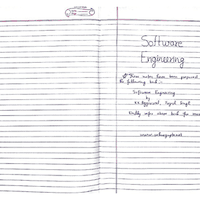 Software
Engineering
These notes have been prepared
the following book:-
Software Engineering
by
K.K. Aggarwal, Yogesh Singh
Kindly refer above book for